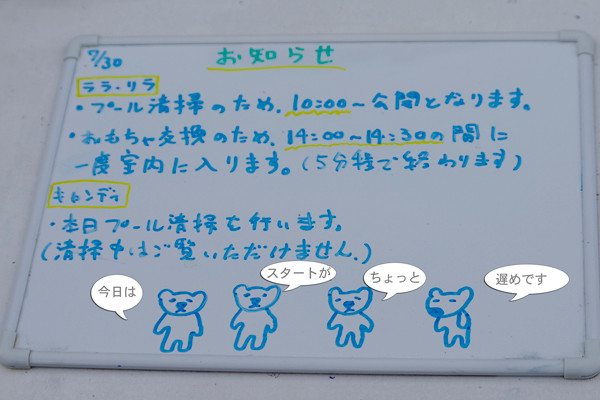 7/30
お知らせ
ララ・リラ
・プール清掃のため、10:00~公開となります。
・おもちゃ交換のため、14:00~14:30の間に
一度室内に入ります。(5分程で終わります)
キャンディ
・本日プール清掃を行います。
(清掃中はご覧いただけません。)
今日は
スタートが
ちょっと
遅めです